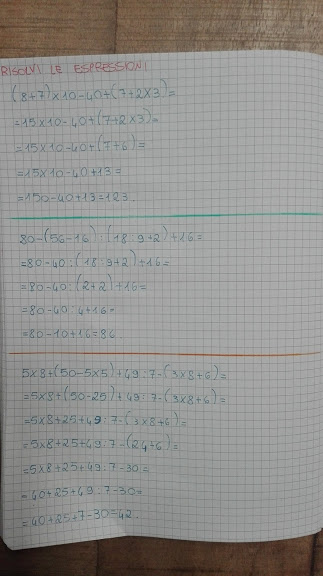 RISOLVI LE ESPRESSIONI
(8+7)×10-40+(7+2×3)=
=15×10-40+(7+2×3)=
=15×10-40+(7+6)=
=15×10-40+13=
=150-40+13=123.
80-(56-16):(18:9+2)+16=
=80-40:(18:9+2)+16=
=80-40:(2+2)+16=
=80-40:4+16=
=80-10+16=86.
5×8+(50-5×5)+49:7-(3×8+6)=
=5×8+(50-25)+49:7-(3×8+6)=
=5×8+25+49:7-(3×8+6)=
=5×8+25+49:7-(24+6)=
=5×8+25+49:7-30=
=40+25+49:7-30=
=40+25+7-30=42.